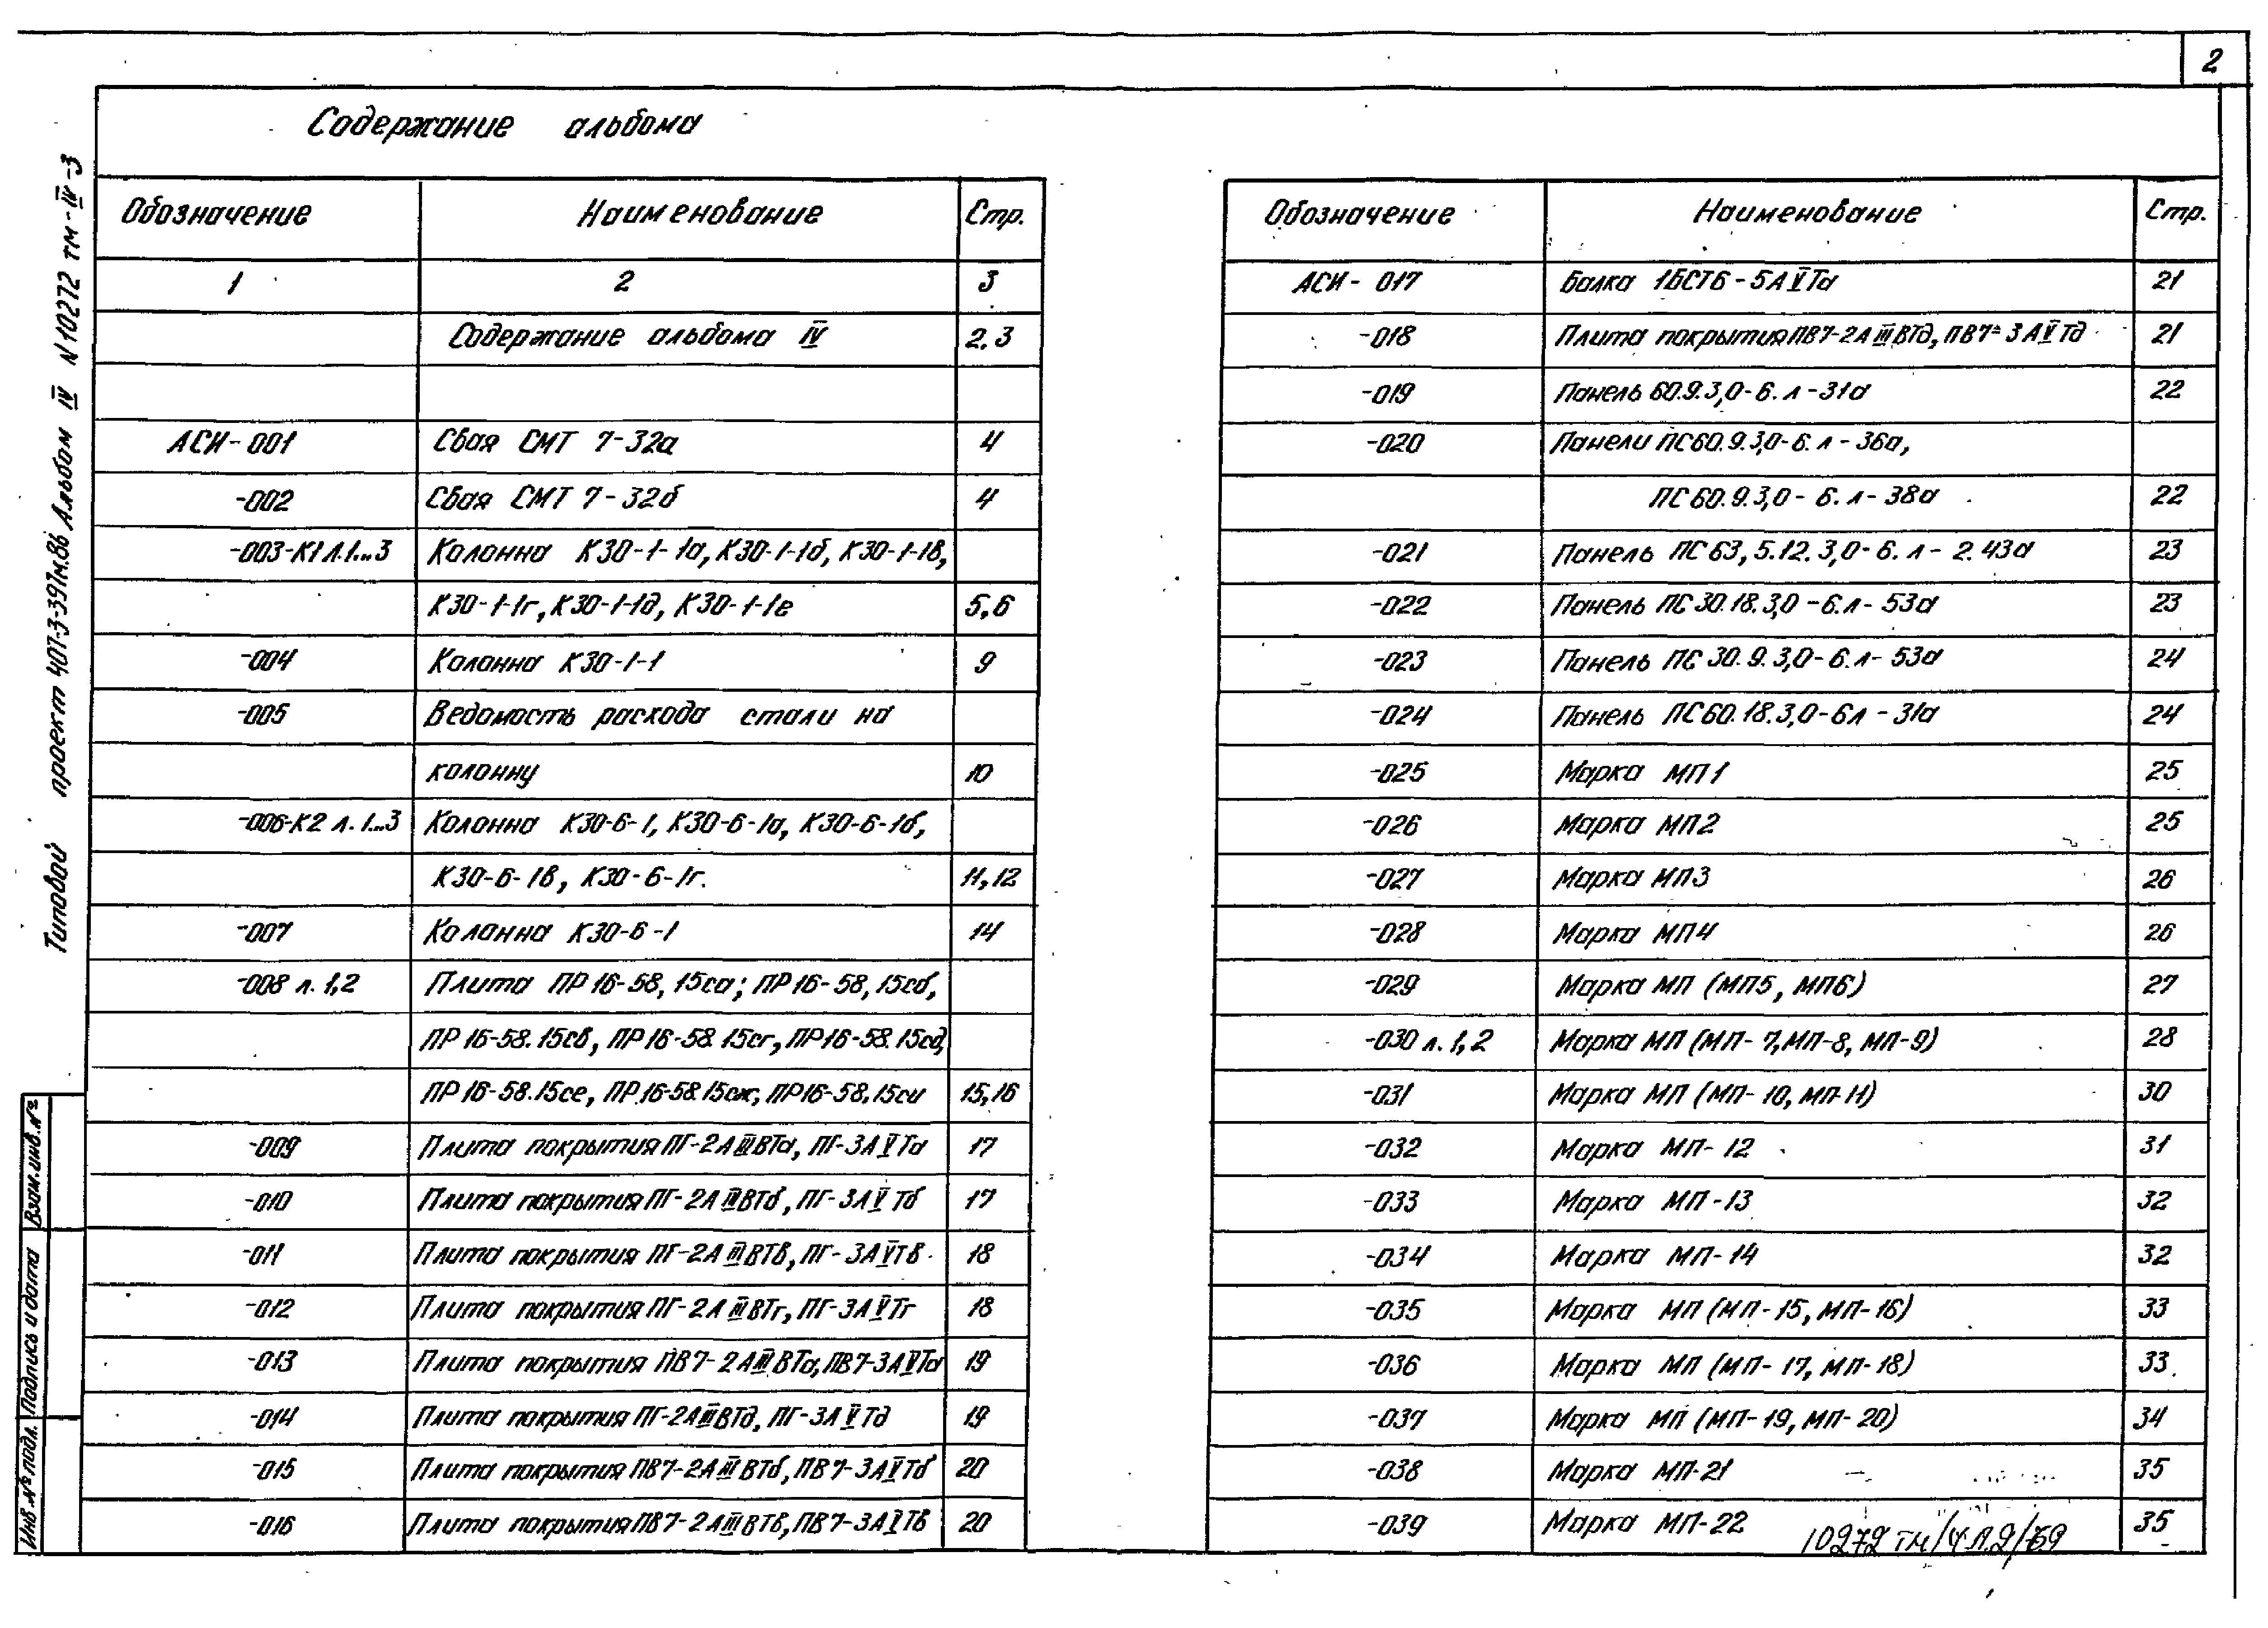 2
Содержание альбома
Обозначение Наименование Стр.
1 2 3
Содержание альбома IV 2.3
АСИ-001 Свая СМТ 7-32а 4
-002 Свая СМТ 7-32б 4
-003-К1 Л.1...3 Колонна К30-1-1а, К30-1-1б, К30-1-1в,
К30-1-1г, К30-1-1д, К30-1-1е 5,6
-004 Колонна К30-1-1 9
-005 Ведомость расхода стали на
колонну 10
-006-К2 л.1...3 Колонна К30-6-1, К30-6-1а, К30-6-1б,
К30-6-1в, К30-6-1г. 11,12
-007 Колонна К30-6-1 14
-008 л.1,2 Плита ПР16-58,15са; ПР16-58,15сб,
ПР16-58.15св, ПР16-58.15сг, ПР16-58.15сд,
ПР16-58.15се, ПР.16-58.15сж, ПР16-58.15си 15,16
-009 Плита покрытия ПГ-2АIIIВТа, ПГ-3АVТа 17
-010 Плита покрытия ПГ-2АIIIВТб, ПГ-3АVТб 17
-011 Плита покрытия ПГ-2АIIIВТв, ПГ-3АVТв 18
-012 Плита покрытия ПГ-2АIIIВТг, ПГ-3АVТг 18
-013 Плита покрытия ПВ7-2АIIIВТа, ПВ7-3АVТа 19
-014 Плита покрытия ПГ-2АIIIВТд, ПГ-3АVТд 19
-015 Плита покрытия ПВ7-2АIIIВТб, ПВ7-3АVТб 20
-016 Плита покрытия ПВ7-2АIIIВТв, ПВ7-3АVТв 20
Обозначение Наименование Стр.
АСИ-017 Балка 1БСТ6-5АVТа 21
-018 Плита покрытия ПВ7-2АIIIВТд, ПВ7-3АVТд 21
-019 Панель 60.9.3,0-6.л-31а 22
-020 Панели ПС60.9.3,0-6.л-36а,
ПС60.9.3,0-6.л-38а 22
-021 Панель ПС63,5.12.3,0-6.л-2.43а 23
-022 Панель ПС30.18.3,0-6.л-53а 23
-023 Панель ПС30.9.3,0-6.л-53а 24
-024 Панель ПС60.18.3,0-6л-31а 24
-025 Марка МП1 25
-026 Марка МП2 25
-027 Марка МП3 26
-028 Марка МП4 26
-029 Марка МП (МП5, МП6) 27
-030 л.1,2 Марка МП (МП-7,МП-8, МП-9) 28
-031 Марка МП (МП-10, МП-11) 30
-032 Марка МП-12 31
-033 Марка МП-13 32
-034 Марка МП-14 32
-035 Марка МП (МП-15, МП-16) 33
-036 Марка МП (МП-17, МП-18) 33
-037 Марка МП (МП-19, МП-20) 34
-038 Марка МП-21 35
-039 Марка МП-22 35
Типовой проект 407-3-397м.86 Альбом IV N10272 тм-IV-3
Взам.инв.№
Подпись и дата
Инв.№ подл.
10272 тм/4 л.2/59